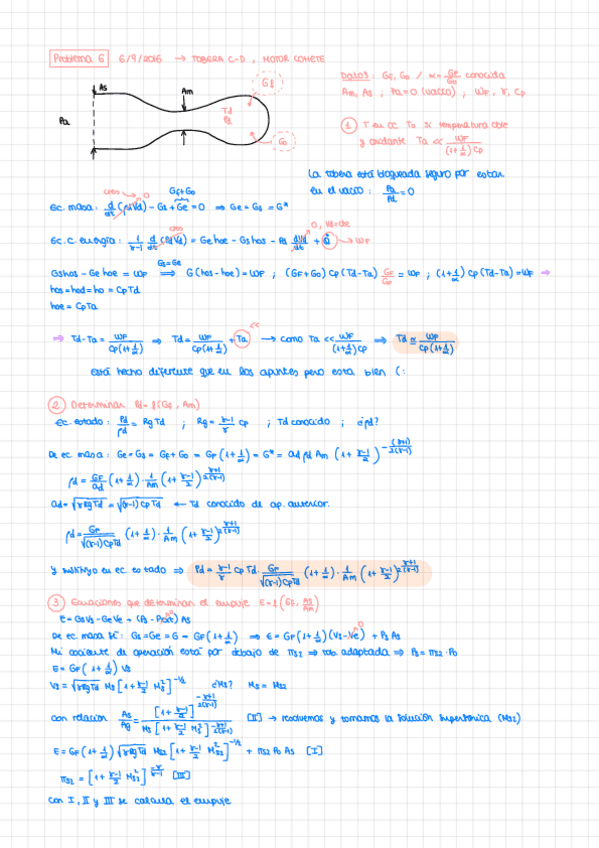 Problema 6 6/9/2016 → TOBERA C-D, MOTOR COHETE
DATOS: GF, GO / α = GF/GO conocida
Am, As ; Pa=0 (vacío) ; WF, γ, Cp
As
Am
Gf
Pa
Td
Pd
Go
1 T en cc To si temperatura cble
y oxidante Ta << WF/((1+1/α) Cp)
La tobera está bloqueada seguro por estar
en el vacío : Pa/Pd = 0
Ec. masa: d/dt (ρd Vd) - Gs + Ge = 0 ⇒ Ge = Gs = G*
Gf+Go
Ec. C. energía: 1/(γ-1) d/dt (Pd Vd) = Ge hoe - Gs hos - Ps dVd/dt + Q → WF
Gs=Ge
Gs hos - Ge hoe = WF ⇒ G (hos - hoe) = WF ; (GF+GO) Cp (Td-Ta) GF/GF = WF ; (1+1/α) Cp (Td-Ta) = WF ⇒
hos = hod = ho = Cp Td
hoe = Cp Ta
⇒ Td - Ta = WF/(Cp(1+1/α)) ⇒ Td = WF/(Cp(1+1/α)) + Ta → como Ta << WF/((1+1/α) Cp) ⇒ Td ≃ WF/(Cp(1+1/α))
Está hecho diferente que en los apuntes pero está bien (:
2 Determinar Pd = f(GF, Am)
Ec. estado: Pd/ρd = Rg Td ; Rg = (γ-1)/γ Cp ; Td conocido ; ¿ρd?
De ec masa: Ge = Gs = GF + GO = GF (1+1/α) = G* = ad ρd Am (1 + (γ-1)/2)^(-(γ+1)/(2(γ-1)))
ρd = GF/ad (1+1/α) · 1/Am (1 + (γ-1)/2)^((γ+1)/(2(γ-1)))
ad = √(γ Rg Td) = √((γ-1) Cp Td) ← Td conocido de ap. anterior.
ρd = GF/√((γ-1) Cp Td) (1+1/α) · 1/Am (1 + (γ-1)/2)^((γ+1)/(2(γ-1)))
y sustituyo en ec. estado ⇒ Pd = (γ-1)/γ Cp Td · GF/√((γ-1) Cp Td) (1+1/α) · 1/Am (1 + (γ-1)/2)^((γ+1)/(2(γ-1)))
3 Ecuaciones que determinan el empuje E = f(GF, As/Am)
E = Gs Vs - Ge Ve + (Ps - Pext) As
De ec. masa SC: Gs = Ge = G = GF (1+1/α) ⇒ E = GF (1+1/α) (Vs - Ve) + Ps As
Mi cociente de operación está por debajo de π32 ⇒ tob. adaptada ⇒ Ps = π32 · Po
E = GF (1+1/α) Vs
Vs = √(γ Rg Td) Ms [1 + (γ-1)/2 Ms²]^(-1/2) ¿Ms? Ms = M32
con relación As/Ag = [1 + (γ-1)/2]^(-(γ+1)/(2(γ-1))) / (Ms [1 + (γ-1)/2 Ms²]^(-(γ+1)/(2(γ-1)))) [II] → resolvemos y tomamos la solución supersónica (M32)
E = GF (1+1/α) √(γ Rg Td) M32 [1 + (γ-1)/2 M32²]^(-1/2) + π32 Po As [I]
π32 = [1 + (γ-1)/2 M32²]^(-γ/(γ-1)) [III]
con I, II y III se calcula el empuje